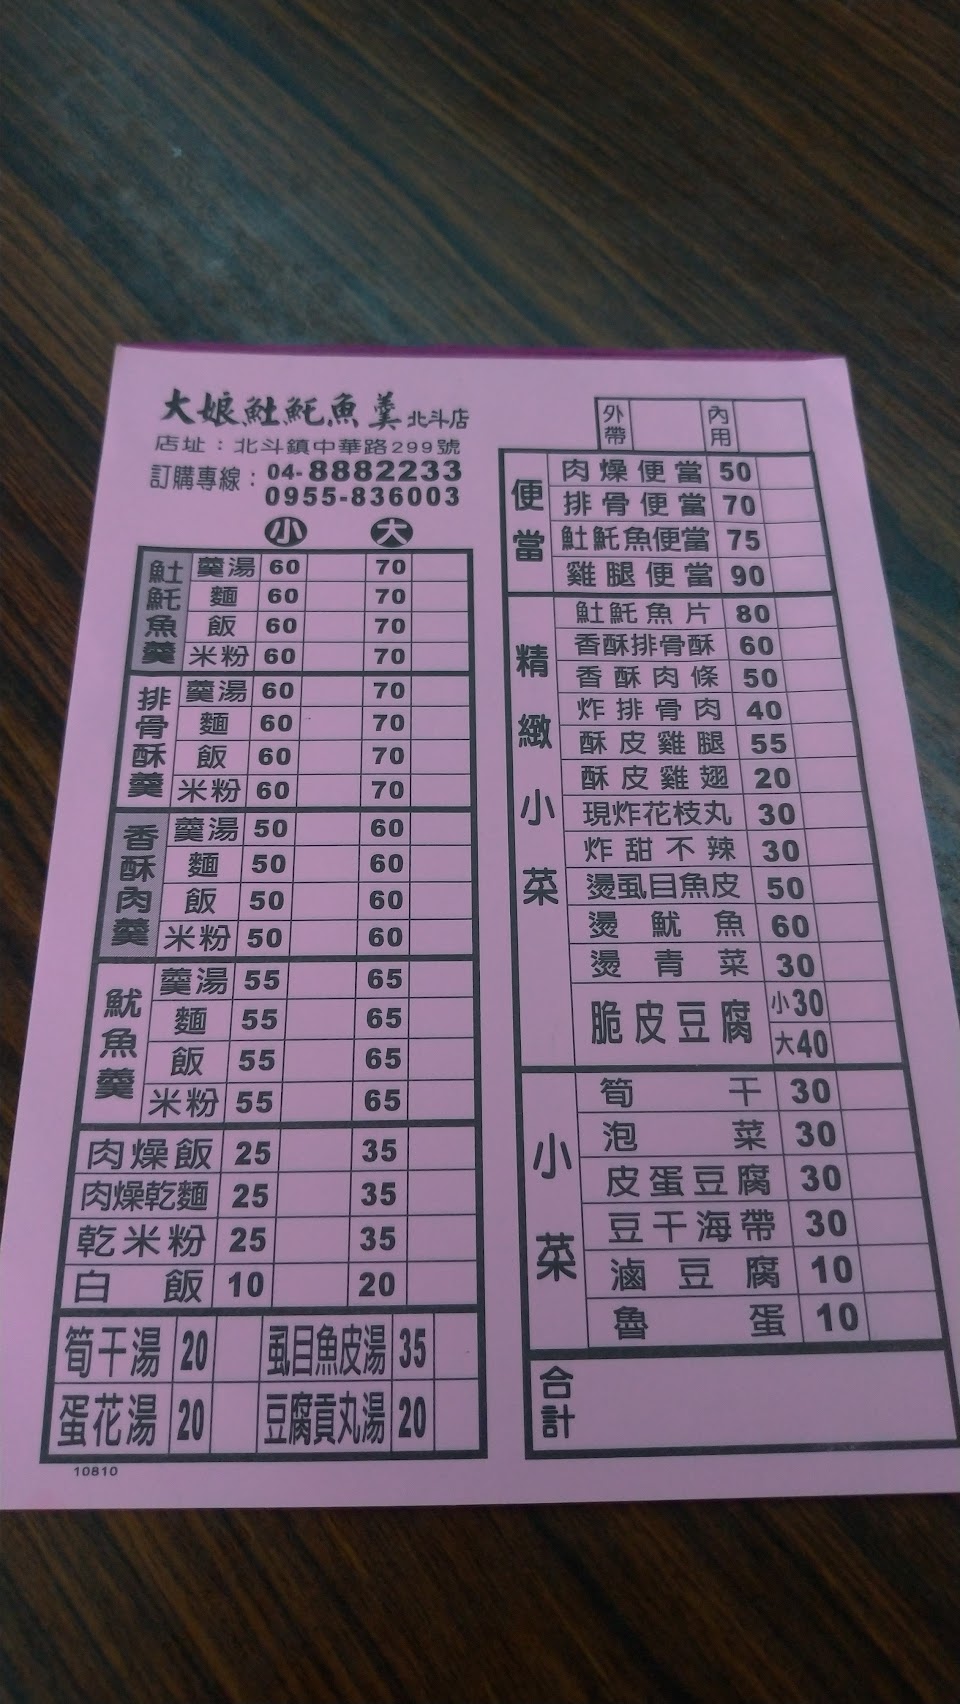 大娘𩵚魠魚羹 北斗店
店址：北斗鎮中華路299號
訂購專線：04-8882233
0955-836003
小 大
𩵚魠魚羹
羹湯 60 70
麵 60 70
飯 60 70
米粉 60 70
排骨酥羹
羹湯 60 70
麵 60 70
飯 60 70
米粉 60 70
香酥肉羹
羹湯 50 60
麵 50 60
飯 50 60
米粉 50 60
魷魚羹
羹湯 55 65
麵 55 65
飯 55 65
米粉 55 65
肉燥飯 25 35
肉燥乾麵 25 35
乾米粉 25 35
白飯 10 20
筍干湯 20 虱目魚皮湯 35
蛋花湯 20 豆腐貢丸湯 20
10810
外帶 內用
便當
肉燥便當 50
排骨便當 70
𩵚魠魚便當 75
雞腿便當 90
精緻小菜
𩵚魠魚片 80
香酥排骨酥 60
香酥肉條 50
炸排骨肉 40
酥皮雞腿 55
酥皮雞翅 20
現炸花枝丸 30
炸甜不辣 30
燙虱目魚皮 50
燙魷魚 60
燙青菜 30
脆皮豆腐 小30
大40
小菜
筍干 30
泡菜 30
皮蛋豆腐 30
豆干海帶 30
滷豆腐 10
魯蛋 10
合計